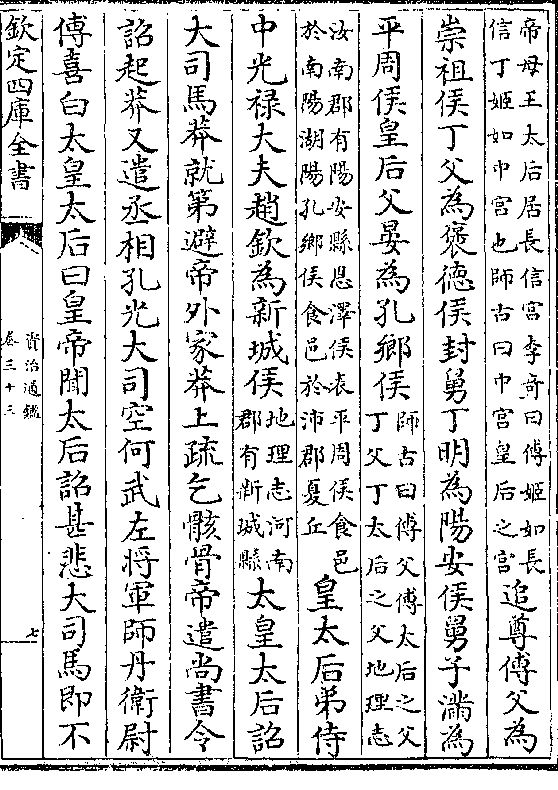 帝母王太后居長信宮李奇曰傅姬如長
信丁姬如中宮也師古曰中宮皇后之宮
追尊傅父為
崇祖侯丁父為褒德侯封舅丁明為陽安侯舅子滿為
平周侯皇后父晏為孔鄉侯
師古曰傅父傅太后之父
丁父丁太后之父地理志
汝南郡有陽安縣恩澤侯表平周侯食邑
於南陽湖陽孔鄉侯食邑於沛郡夏丘
皇太后弟侍
中光祿大夫趙欽為新城侯
地理志河南
郡有新城縣
太皇太后詔
大司馬莽就第避帝外家莽上疏乞骸骨帝遣尚書令
詔起莽又遣丞相孔光大司空何武左將軍師丹衛尉
傅喜白太皇太后曰皇帝聞太后詔甚悲大司馬即不
欽定四庫全書
資治通鑑
卷三十三
七